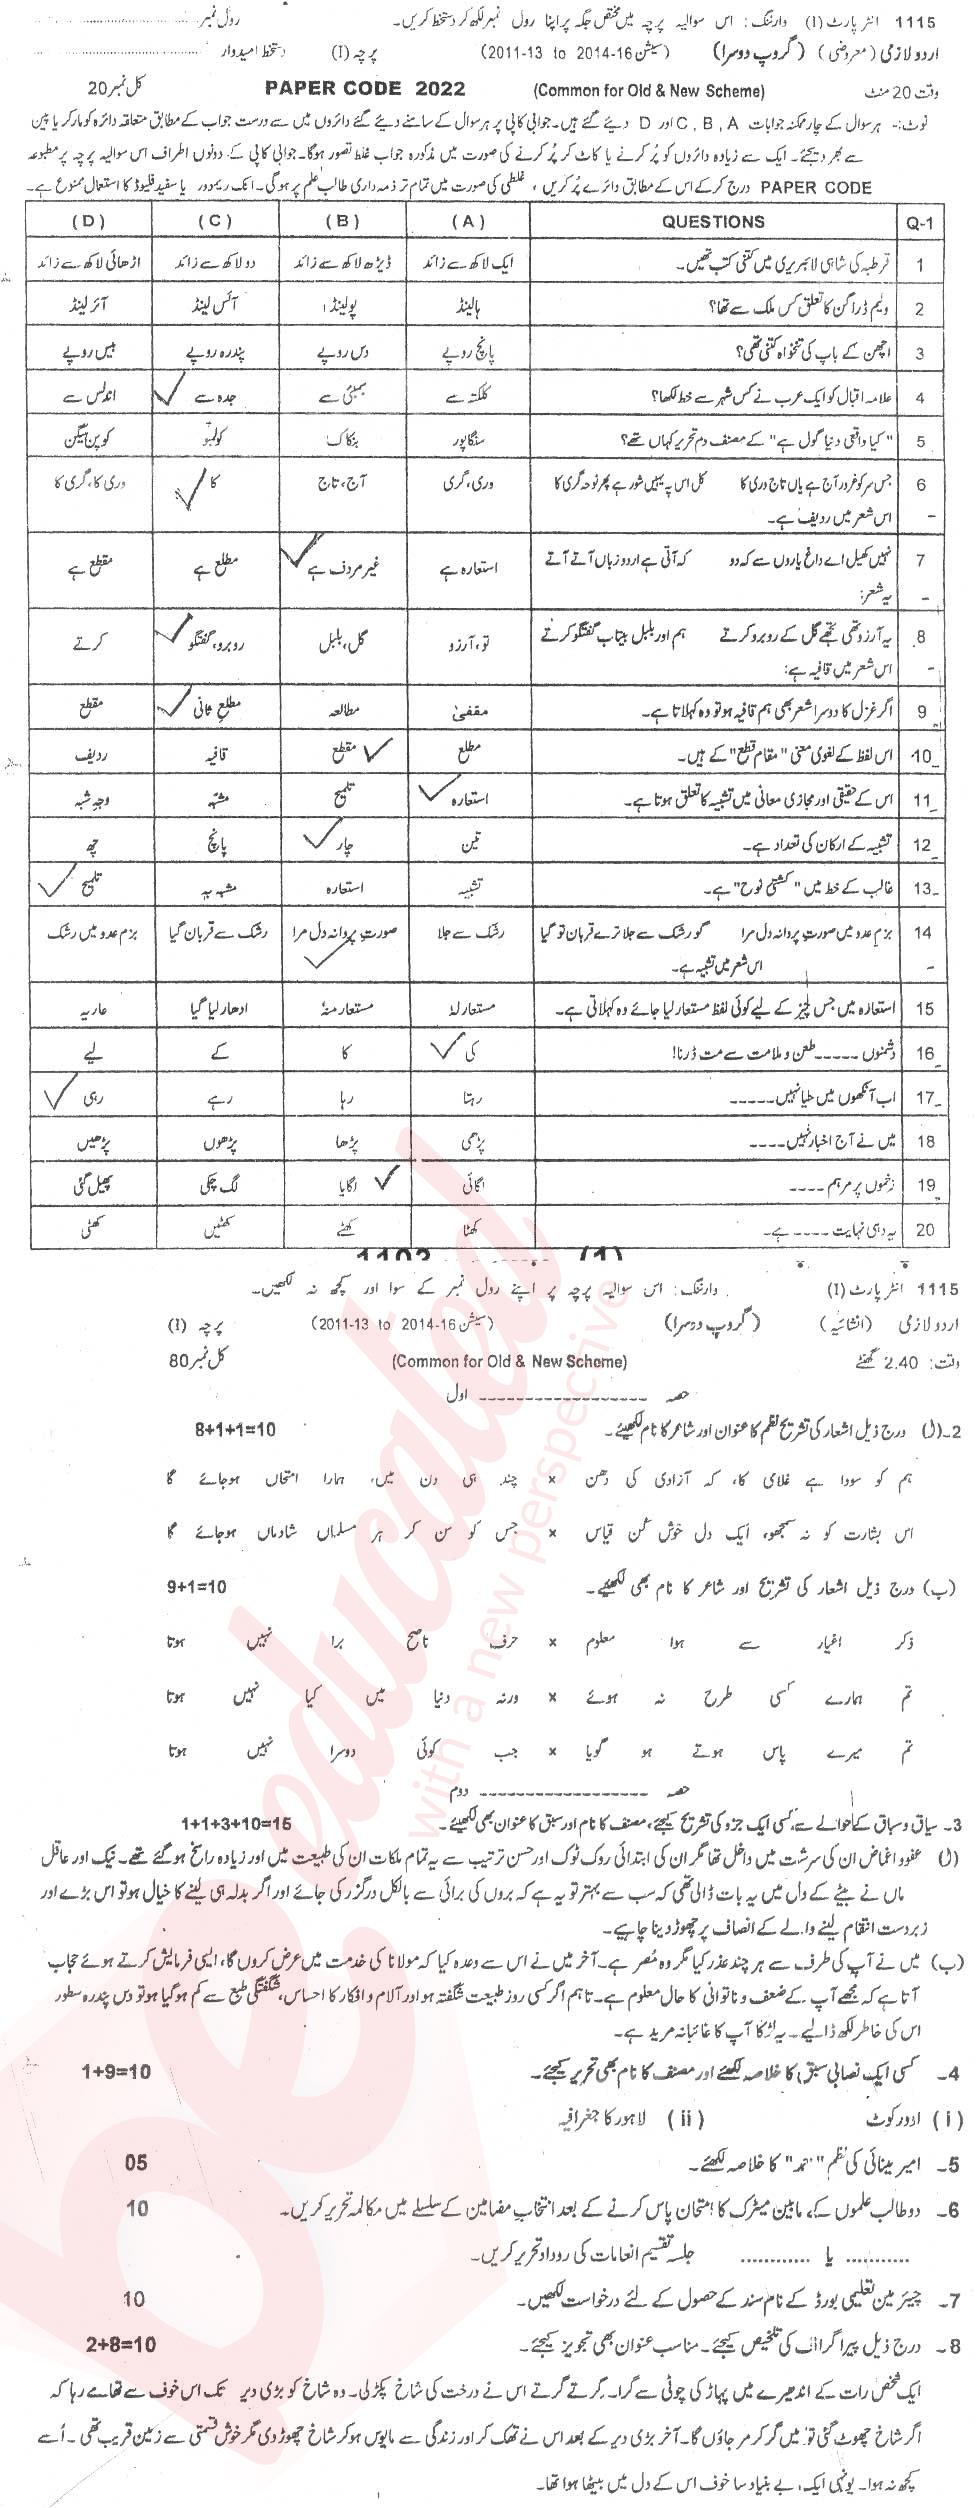 1115 انٹر پارٹ (I) وارننگ: اس سوالیہ پرچہ میں مختص جگہ پر اپنا رول نمبر لکھ کر دستخط کریں۔ رول نمبر
اردو لازمی (معروضی) (گروپ دوسرا) (سیشن 2011-13 to 2014-16) پرچہ (I) دستخط امیدوار
وقت 20 منٹ (Common for Old & New Scheme) PAPER CODE 2022 کل نمبر 20
نوٹ:- ہر سوال کے چار ممکنہ جوابات A, B, C اور D دیئے گئے ہیں۔ جوابی کاپی پر ہر سوال کے سامنے دیئے گئے دائروں میں سے درست جواب کے مطابق متعلقہ دائرہ کو مارکر یا پین
سے بھر دیجئے۔ ایک سے زیادہ دائروں کو پُر کرنے یا کاٹ کر پُر کرنے کی صورت میں مذکورہ جواب غلط تصور ہوگا۔ جوابی کاپی کے دونوں اطراف اس سوالیہ پرچہ پر مطبوعہ
PAPER CODE درج کر کے اس کے مطابق دائرے پُر کریں، غلطی کی صورت میں تمام تر ذمہ داری طالب علم پر ہوگی۔ انک ریموور یا سفید فلیوڈ کا استعمال ممنوع ہے۔
Q-1 QUESTIONS (A) (B) (C) (D)
1 قرطبہ کی شاہی لائبریری میں کتنی کتب تھیں۔ ایک لاکھ سے زائد ڈیڑھ لاکھ سے زائد دو لاکھ سے زائد اڑھائی لاکھ سے زائد
2 ولیم ڈراگن کا تعلق کس ملک سے تھا؟ ہالینڈ پولینڈ آئس لینڈ آئر لینڈ
3 اچھن کے باپ کی تنخواہ کتنی تھی؟ پانچ روپے دس روپے پندرہ روپے بیس روپے
4 علامہ اقبال کو ایک عرب نے کس شہر سے خط لکھا؟ کلکتہ سے بمبئی سے جدہ سے اندلس سے
5 "کیا واقعی دنیا گول ہے" کے مصنف دم تحریر کہاں تھے؟ سنگاپور بنکاک کولمبو کوپن ہیگن
6 جس سر کو غرور آج ہے یاں تاج وری کا کل اس پہ یہیں شور ہے پھر نوحہ گری کا وری، گری آج، تاج کا وری کا، گری کا
- اس شعر میں ردیف ہے۔
7 نہیں کھیل اے داغ یاروں سے کہہ دو کہ آتی ہے اردو زباں آتے آتے استعارہ ہے غیر مردف ہے مطلع ہے مقطع ہے
- یہ شعر:
8 یہ آرزو تھی تجھے گل کے روبرو کرتے ہم اور بلبل بیتاب گفتگو کرتے تو، آرزو گل، بلبل روبرو، گفتگو کرتے
- اس شعر میں قافیہ ہے:
9 اگر غزل کا دوسرا شعر بھی ہم قافیہ ہو تو وہ کہلاتا ہے۔ مقفیٰ مطالعہ مطلع ثانی مقطع
10 اس لفظ کے لغوی معنی "مقام قطع" کے ہیں۔ مطلع مقطع قافیہ ردیف
11 اس کے حقیقی اور مجازی معانی میں تشبیہ کا تعلق ہوتا ہے۔ استعارہ تلمیح مشبہ وجہ شبہ
12 تشبیہ کے ارکان کی تعداد ہے۔ تین چار پانچ چھ
13 غالب کے خط میں "کشتی نوح" ہے۔ تشبیہ استعارہ مشبہ بہ تلمیح
14 بزم عدو میں صورت پروانہ دل مرا گو رشک سے جلا ترے قربان تو گیا رشک سے جلا صورت پروانہ دل مرا رشک سے قربان گیا بزم عدو میں رشک
- اس شعر میں تشبیہ ہے۔
15 استعارہ میں جس چیز کے لیے کوئی لفظ مستعار لیا جائے وہ کہلاتی ہے۔ مستعار لہٗ مستعار منہٗ ادھار لیا گیا عاریہ
16 دشمنوں ----- طعن و ملامت سے مت ڈرنا! کی کا کے لیے
17 اب آنکھوں میں حیا نہیں ----- رہتا رہا رہے رہی
18 میں نے آج اخبار نہیں ---- پڑھی پڑھا پڑھوں پڑھیں
19 زخموں پر مرہم ---- لگائی لگایا لگ چکی پھیل گئی
20 یہ دہی نہایت ---- ہے۔ کھٹا کھٹے کھٹیں کھٹی
1115 انٹر پارٹ (I) وارننگ: اس سوالیہ پرچہ پر اپنے رول نمبر کے سوا اور کچھ نہ لکھیں۔
اردو لازمی (انشائیہ) (گروپ دوسرا) (سیشن 2011-13 to 2014-16) پرچہ (I)
وقت: 2.40 گھنٹے (Common for Old & New Scheme) کل نمبر 80
حصہ ------------------ اول
2۔(ا) درج ذیل اشعار کی تشریح نظم کا عنوان اور شاعر کا نام لکھیئے۔ 8+1+1=10
ہم کو سودا ہے غلامی کا، کہ آزادی کی دھن × چند ہی دن میں، ہمارا امتحاں ہوجائے گا
اس بشارت کو نہ سمجھو، ایک دل خوش کُن قیاس × جس کو سن کر ہر مسلماں شادماں ہوجائے گا
(ب) درج ذیل اشعار کی تشریح اور شاعر کا نام بھی لکھیئے۔ 9+1=10
ذکر اغیار سے ہوا معلوم × حرف ناصح برا نہیں ہوتا
تم ہمارے کسی طرح نہ ہوئے × ورنہ دنیا میں کیا نہیں ہوتا
تم میرے پاس ہوتے ہو گویا × جب کوئی دوسرا نہیں ہوتا
حصہ ------------------ دوم
3۔ سیاق و سباق کے حوالے سے کسی ایک جزو کی تشریح کیجئے، مصنف کا نام اور سبق کا عنوان بھی لکھیئے۔ 1+1+3+10=15
(ا) عفو و اغماض ان کی سرشت میں داخل تھا مگر ان کی ابتدائی روک ٹوک اور حسن ترتیب سے یہ تمام ملکات ان کی طبیعت میں اور زیادہ راسخ ہو گئے تھے۔ نیک اور عاقل
ماں نے بیٹے کے دل میں یہ بات ڈالی تھی کہ سب سے بہتر تو یہ ہے کہ بروں کی برائی سے بالکل درگزر کی جائے اور اگر بدلہ ہی لینے کا خیال ہو تو اس بڑے اور
زبردست انتقام لینے والے کے انصاف پر چھوڑ دینا چاہیے۔
(ب) میں نے آپ کی طرف سے ہر چند عذر کیا مگر وہ مُصر ہے۔ آخر میں نے اس سے وعدہ کیا کہ مولانا کی خدمت میں عرض کروں گا، ایسی فرمایش کرتے ہوئے حجاب
آتا ہے کہ مجھے آپ کے ضعف و ناتوانی کا حال معلوم ہے۔ تاہم اگر کسی روز طبیعت شگفتہ ہو اور آلام و افکار کا احساس، شگفتگی طبع سے کم ہو گیا ہو تو دس پندرہ سطور
اس کی خاطر لکھ ڈالیے۔ یہ لڑکا آپ کا غائبانہ مرید ہے۔
4۔ کسی ایک نصابی سبق کا خلاصہ لکھئے اور مصنف کا نام بھی تحریر کیجئے۔ 1+9=10
(i) اوورکوٹ (ii) لاہور کا جغرافیہ
5۔ امیر مینائی کی نظم "حمد" کا خلاصہ لکھئے۔ 05
6۔ دو طالب علموں کے مابین میٹرک کا امتحان پاس کرنے کے بعد انتخاب مضامین کے سلسلے میں مکالمہ تحریر کریں۔ 10
........... یا ............ جلسہ تقسیم انعامات کی روداد تحریر کریں۔
7۔ چیئرمین تعلیمی بورڈ کے نام سند کے حصول کے لئے درخواست لکھیں۔ 10
8۔ درج ذیل پیراگراف کی تلخیص کیجئے۔ مناسب عنوان بھی تجویز کیجئے۔ 2+8=10
ایک شخص رات کے اندھیرے میں پہاڑ کی چوٹی سے گرا۔ گرتے گرتے اس نے درخت کی شاخ پکڑ لی۔ وہ شاخ کو بڑی دیر تک اس خوف سے تھامے رہا کہ
اگر شاخ چھوٹ گئی تو میں گر کر مر جاؤں گا۔ آخر بڑی دیر کے بعد اس نے تھک کر اور زندگی سے مایوس ہو کر شاخ چھوڑ دی مگر خوش قسمتی سے زمین قریب تھی۔ اُسے
کچھ نہ ہوا۔ یونہی ایک، بے بنیاد سا خوف اس کے دل میں بیٹھا ہوا تھا۔
be educated
with a new perspective